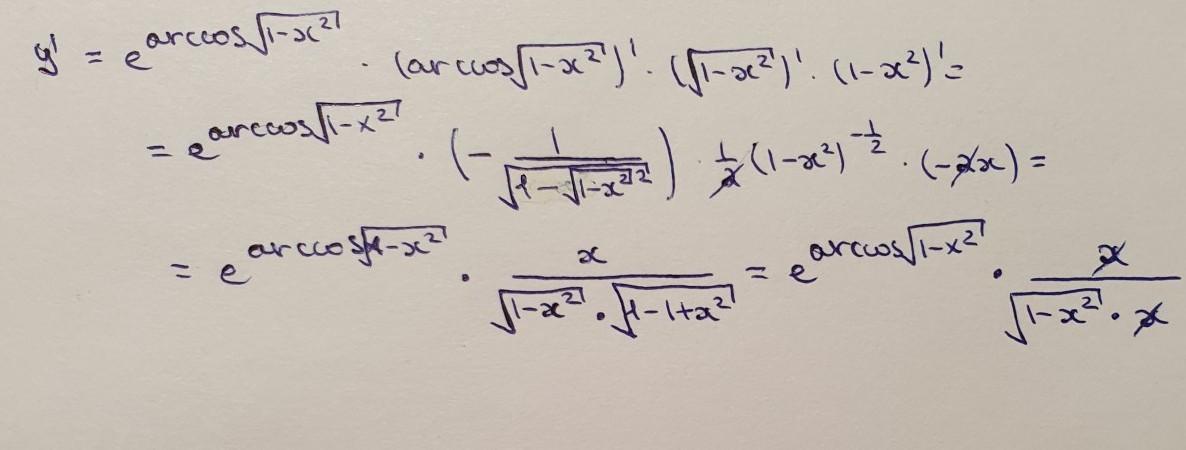 y' = e^{arccos√(1-x²)} · (arccos√(1-x²))' · (√(1-x²))' · (1-x²)' =
= e^{arccos√(1-x²)} · (- 1/√(1-√(1-x²)²)) 1/2 (1-x²)^{-1/2} · (-2x) =
= e^{arccos√(1-x²)} · x/(√(1-x²) · √(1-1+x²)) = e^{arccos√(1-x²)} · x/(√(1-x²) · x)